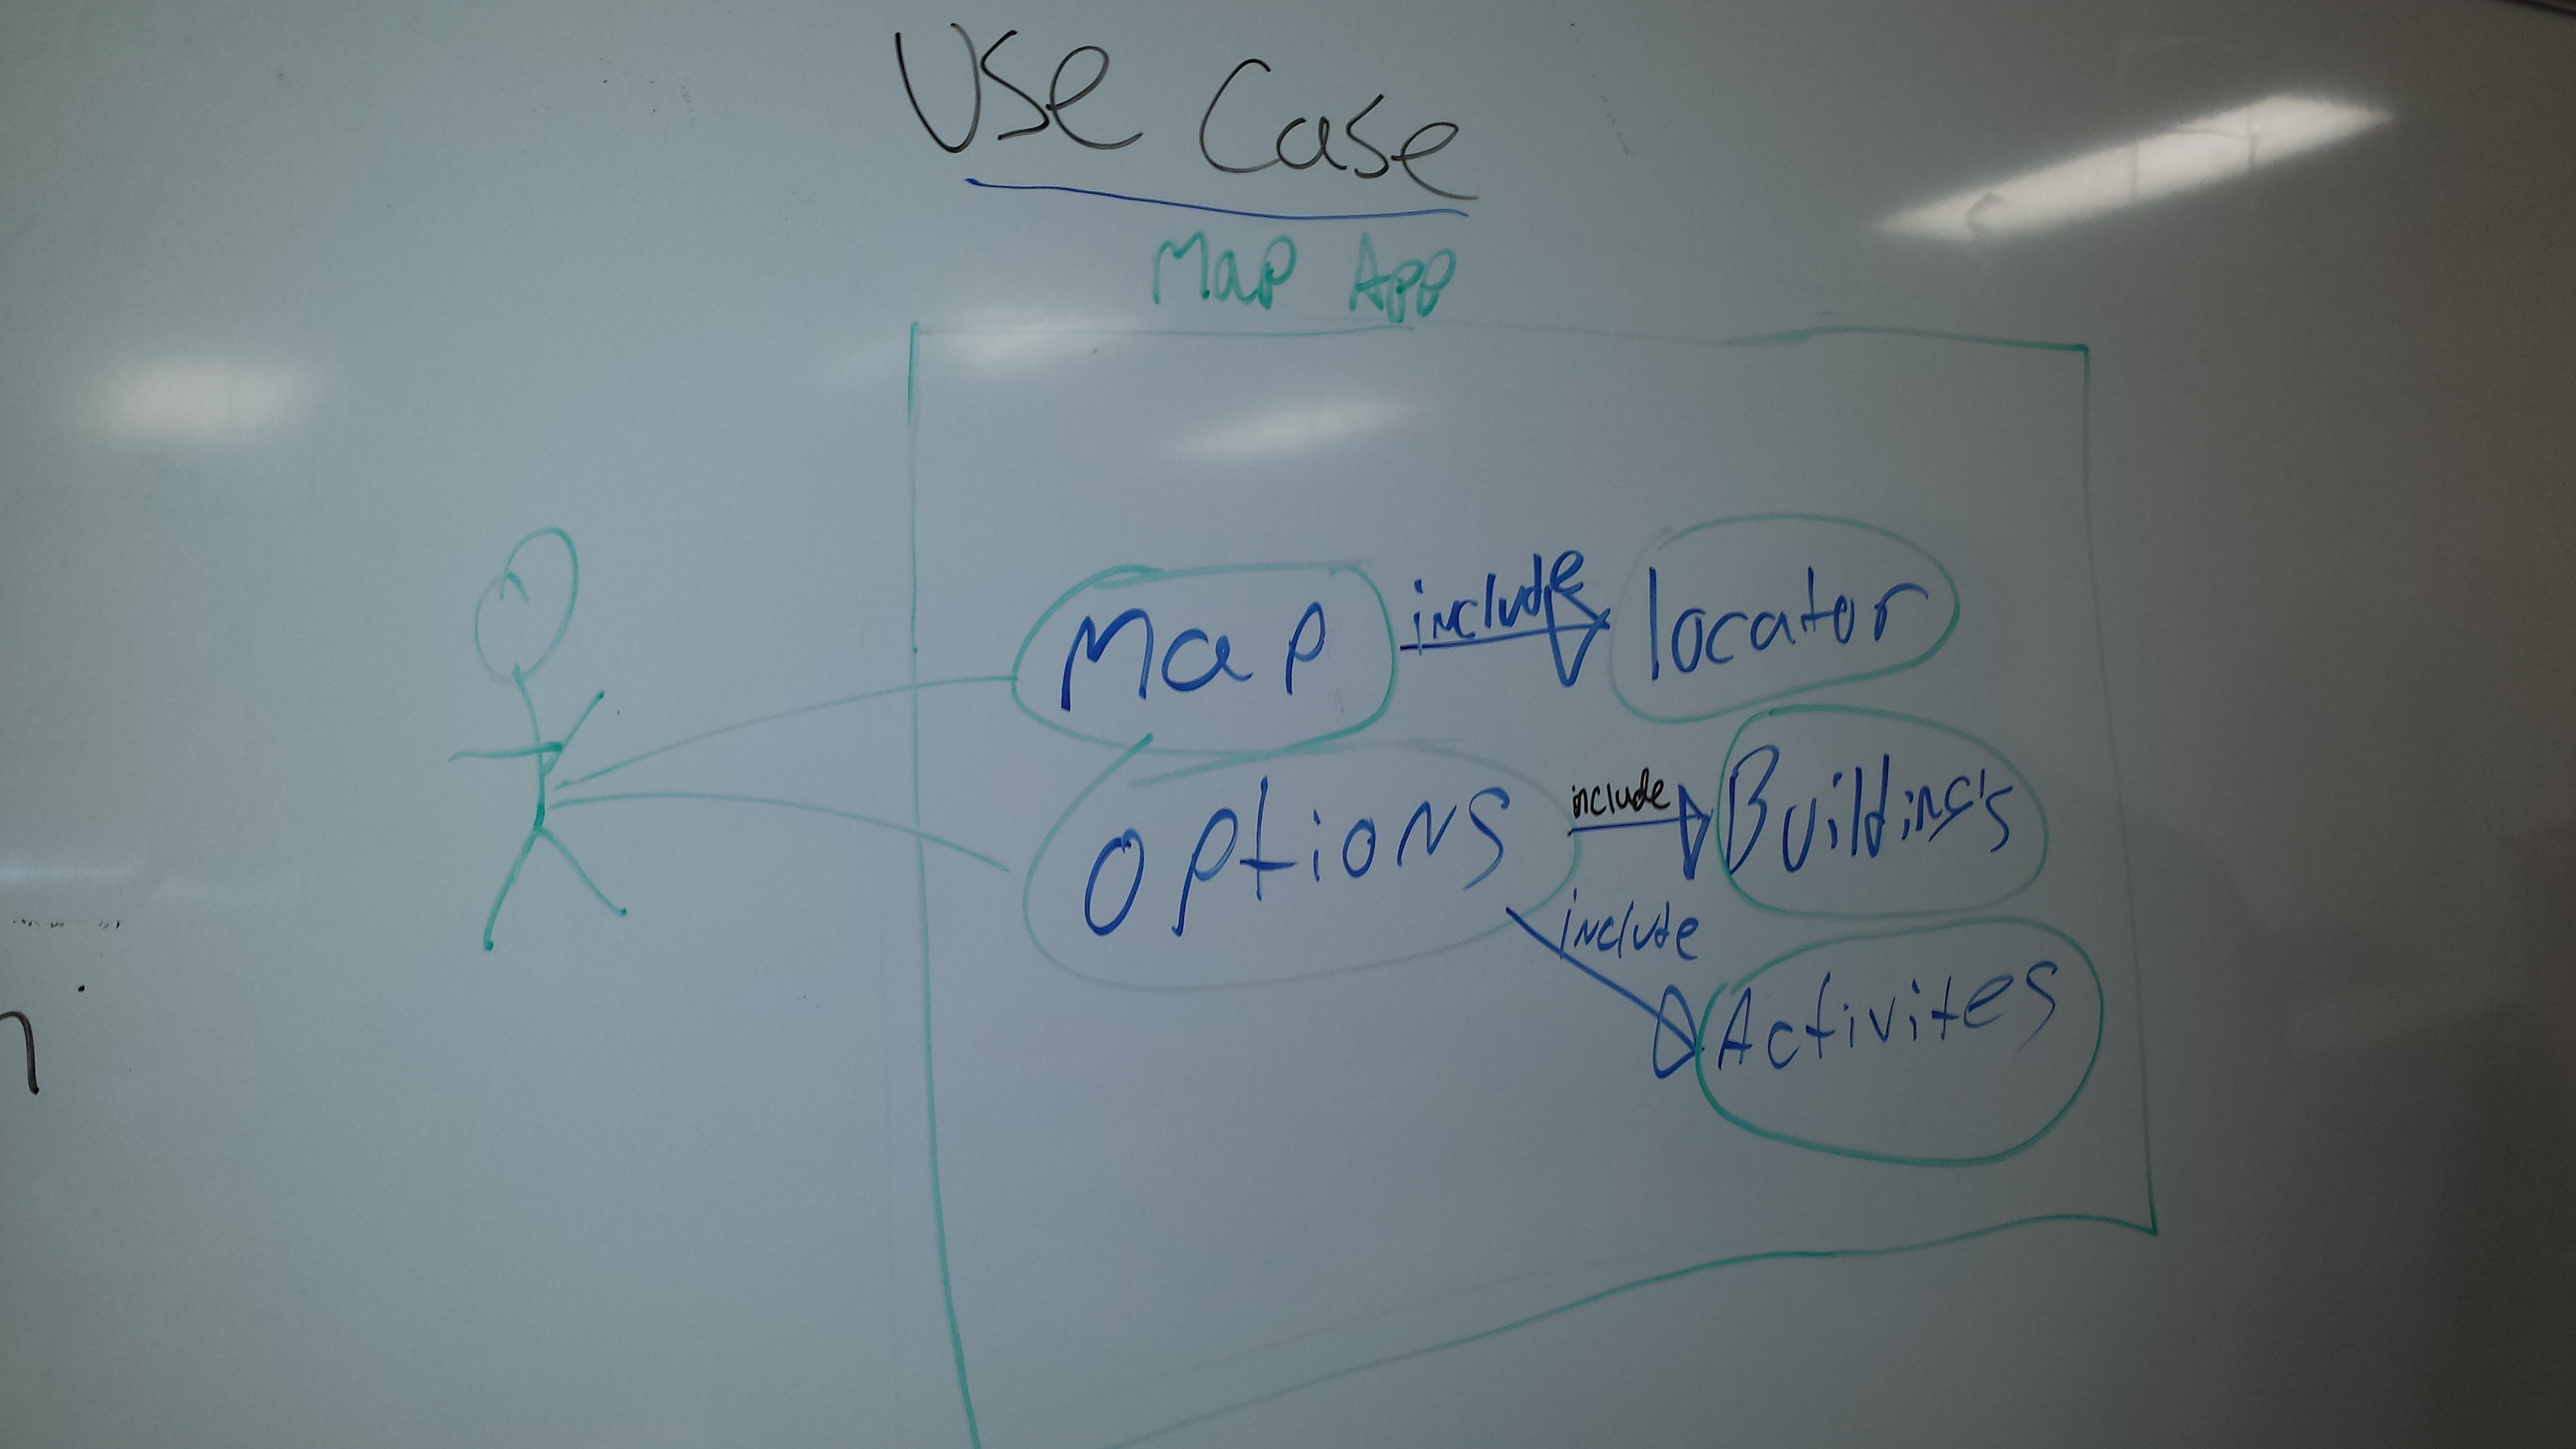 Use Case
Map App
Map
include
locator
options
include
Building's
include
Activites